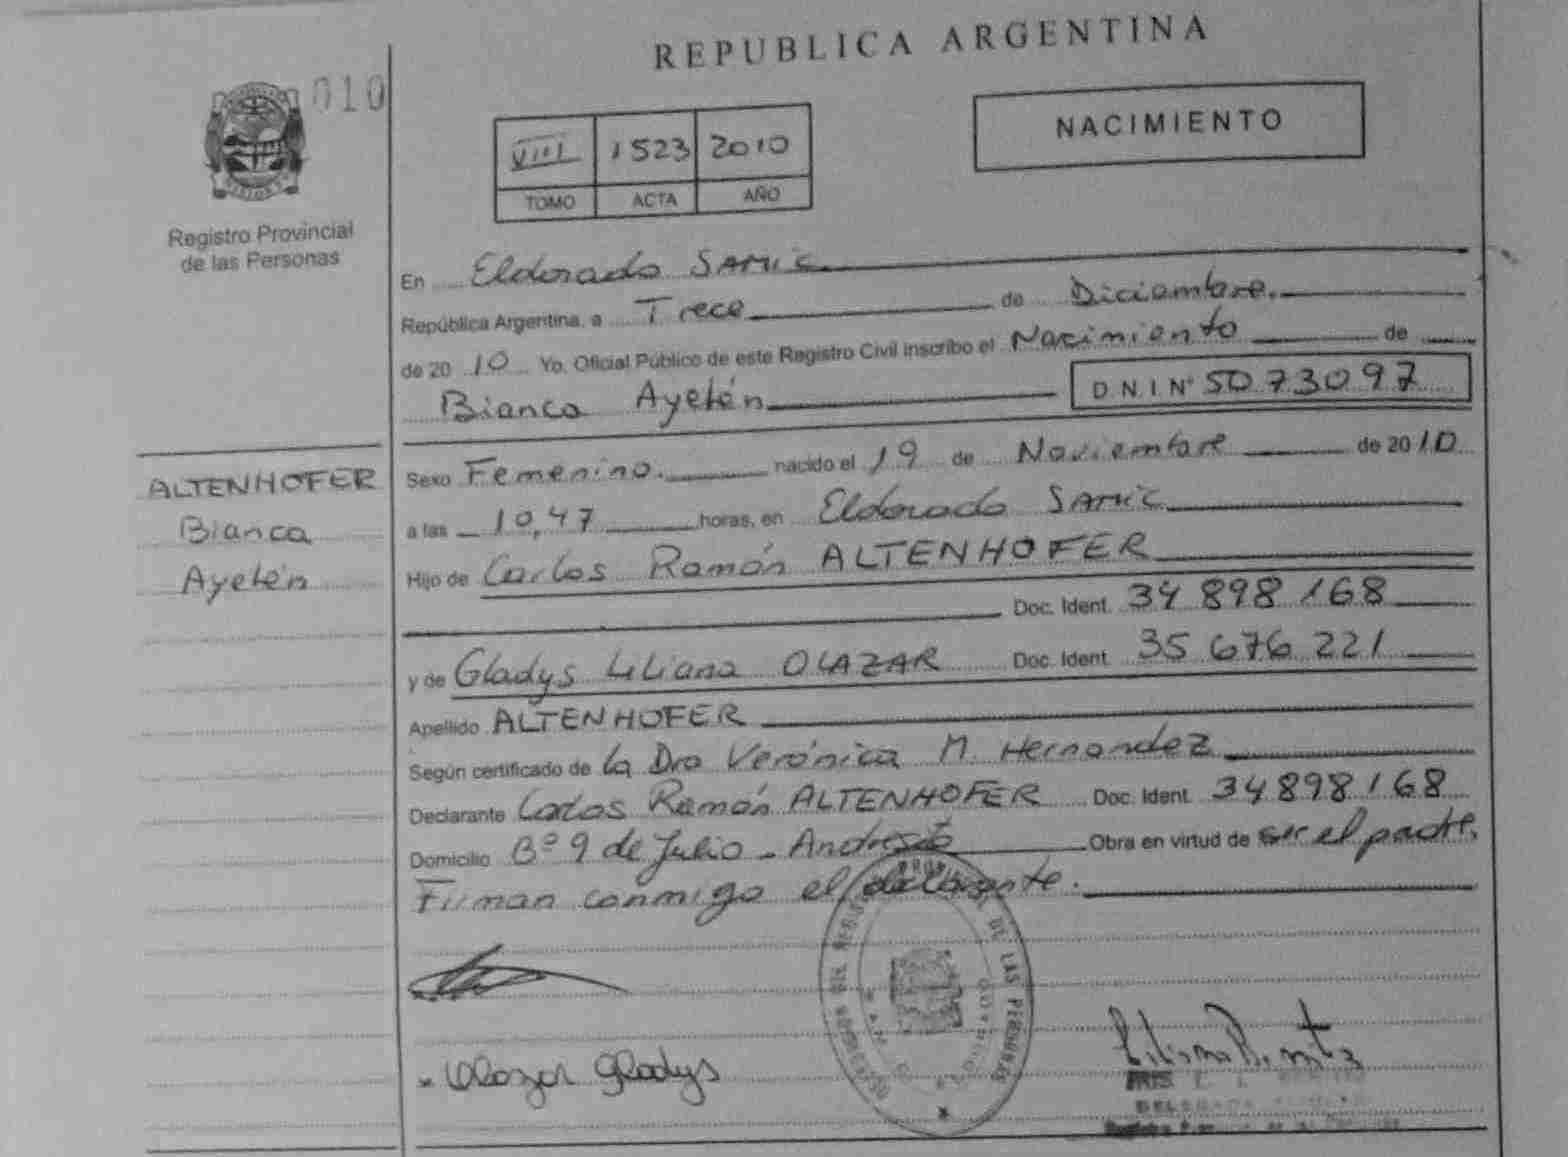 REPUBLICA ARGENTINA
010
NACIMIENTO
VIII 1523 2010
TOMO ACTA AÑO
Registro Provincial
de las Personas
En Eldorado SAMIC
República Argentina, a Trece de Diciembre.
de 20 10 Yo. Oficial Público de este Registro Civil inscribo el Nacimiento de
Bianca Ayelén D.N.I Nº 50 73097
ALTENHOFER
Bianca
Ayelén
Sexo Femenino. nacido el 19 de Noviembre de 2010
a las 10,47 horas, en Eldorado SAMIC
Hijo de Carlos Ramón ALTENHOFER
Doc. Ident. 34 898 168
y de Gladys Liliana OLAZAR Doc. Ident. 35 676 221
Apellido ALTENHOFER
Según certificado de la Dra Verónica M. Hernandez
Declarante Carlos Ramón ALTENHOFER Doc. Ident. 34 898 168
Domicilio Bº 9 de Julio - Andresito Obra en virtud de ser el padre.
Firman conmigo el declarante.
Olazar Gladys